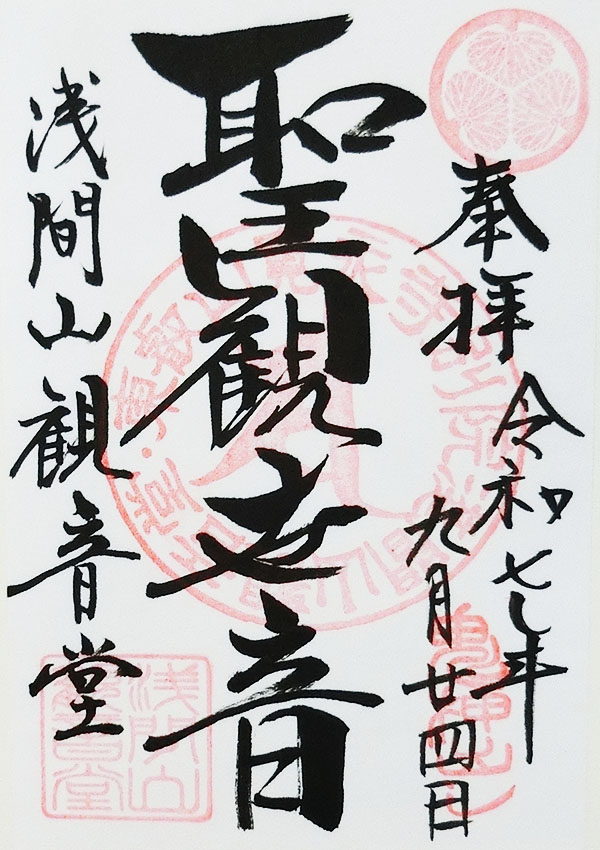 奉拝
令和七年
九月廿四日
聖観世音
浅間山観音堂
浅間山
観音堂